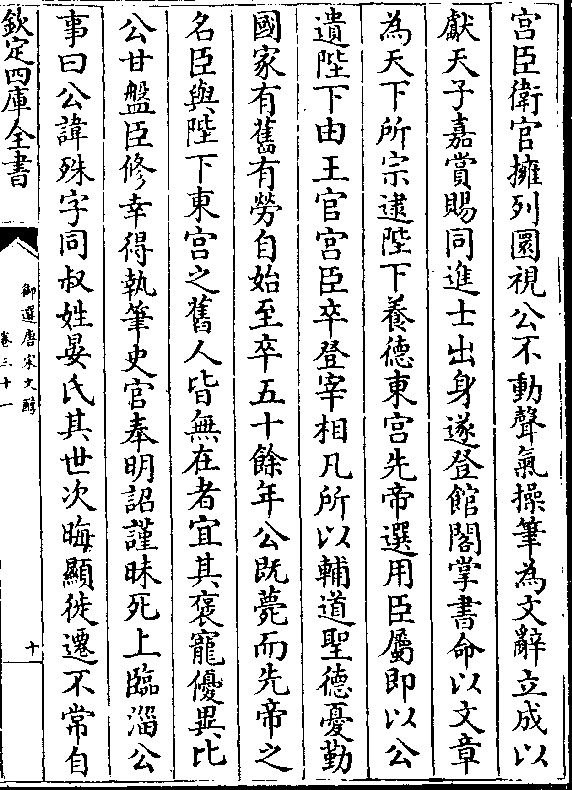 宫臣衛官擁列圜視公不動聲氣操筆為文辭立成以
獻天子嘉賞賜同進士出身遂登館閣掌書命以文章
為天下所宗逮陛下養德東宫先帝選用臣屬即以公
遺陛下由王官宫臣卒登宰相凡所以輔道聖德憂勤
國家有舊有勞自始至卒五十餘年公既薨而先帝之
名臣與陛下東宫之舊人皆無在者宜其褒寵優異比
公甘盤臣修幸得執筆史官奉明詔謹昧死上臨淄公
事曰公諱殊字同叔姓晏氏其世次晦顯徙遷不常自
欽定四庫全書
御選唐宋文醇
卷三十一
十